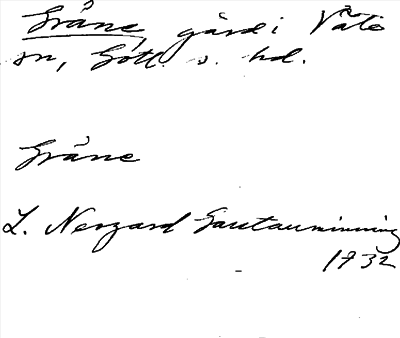 Gråne, gård i Väte
sn, Gotl. s. hd.
Gråne
L. Nergard Gautauminning
1932